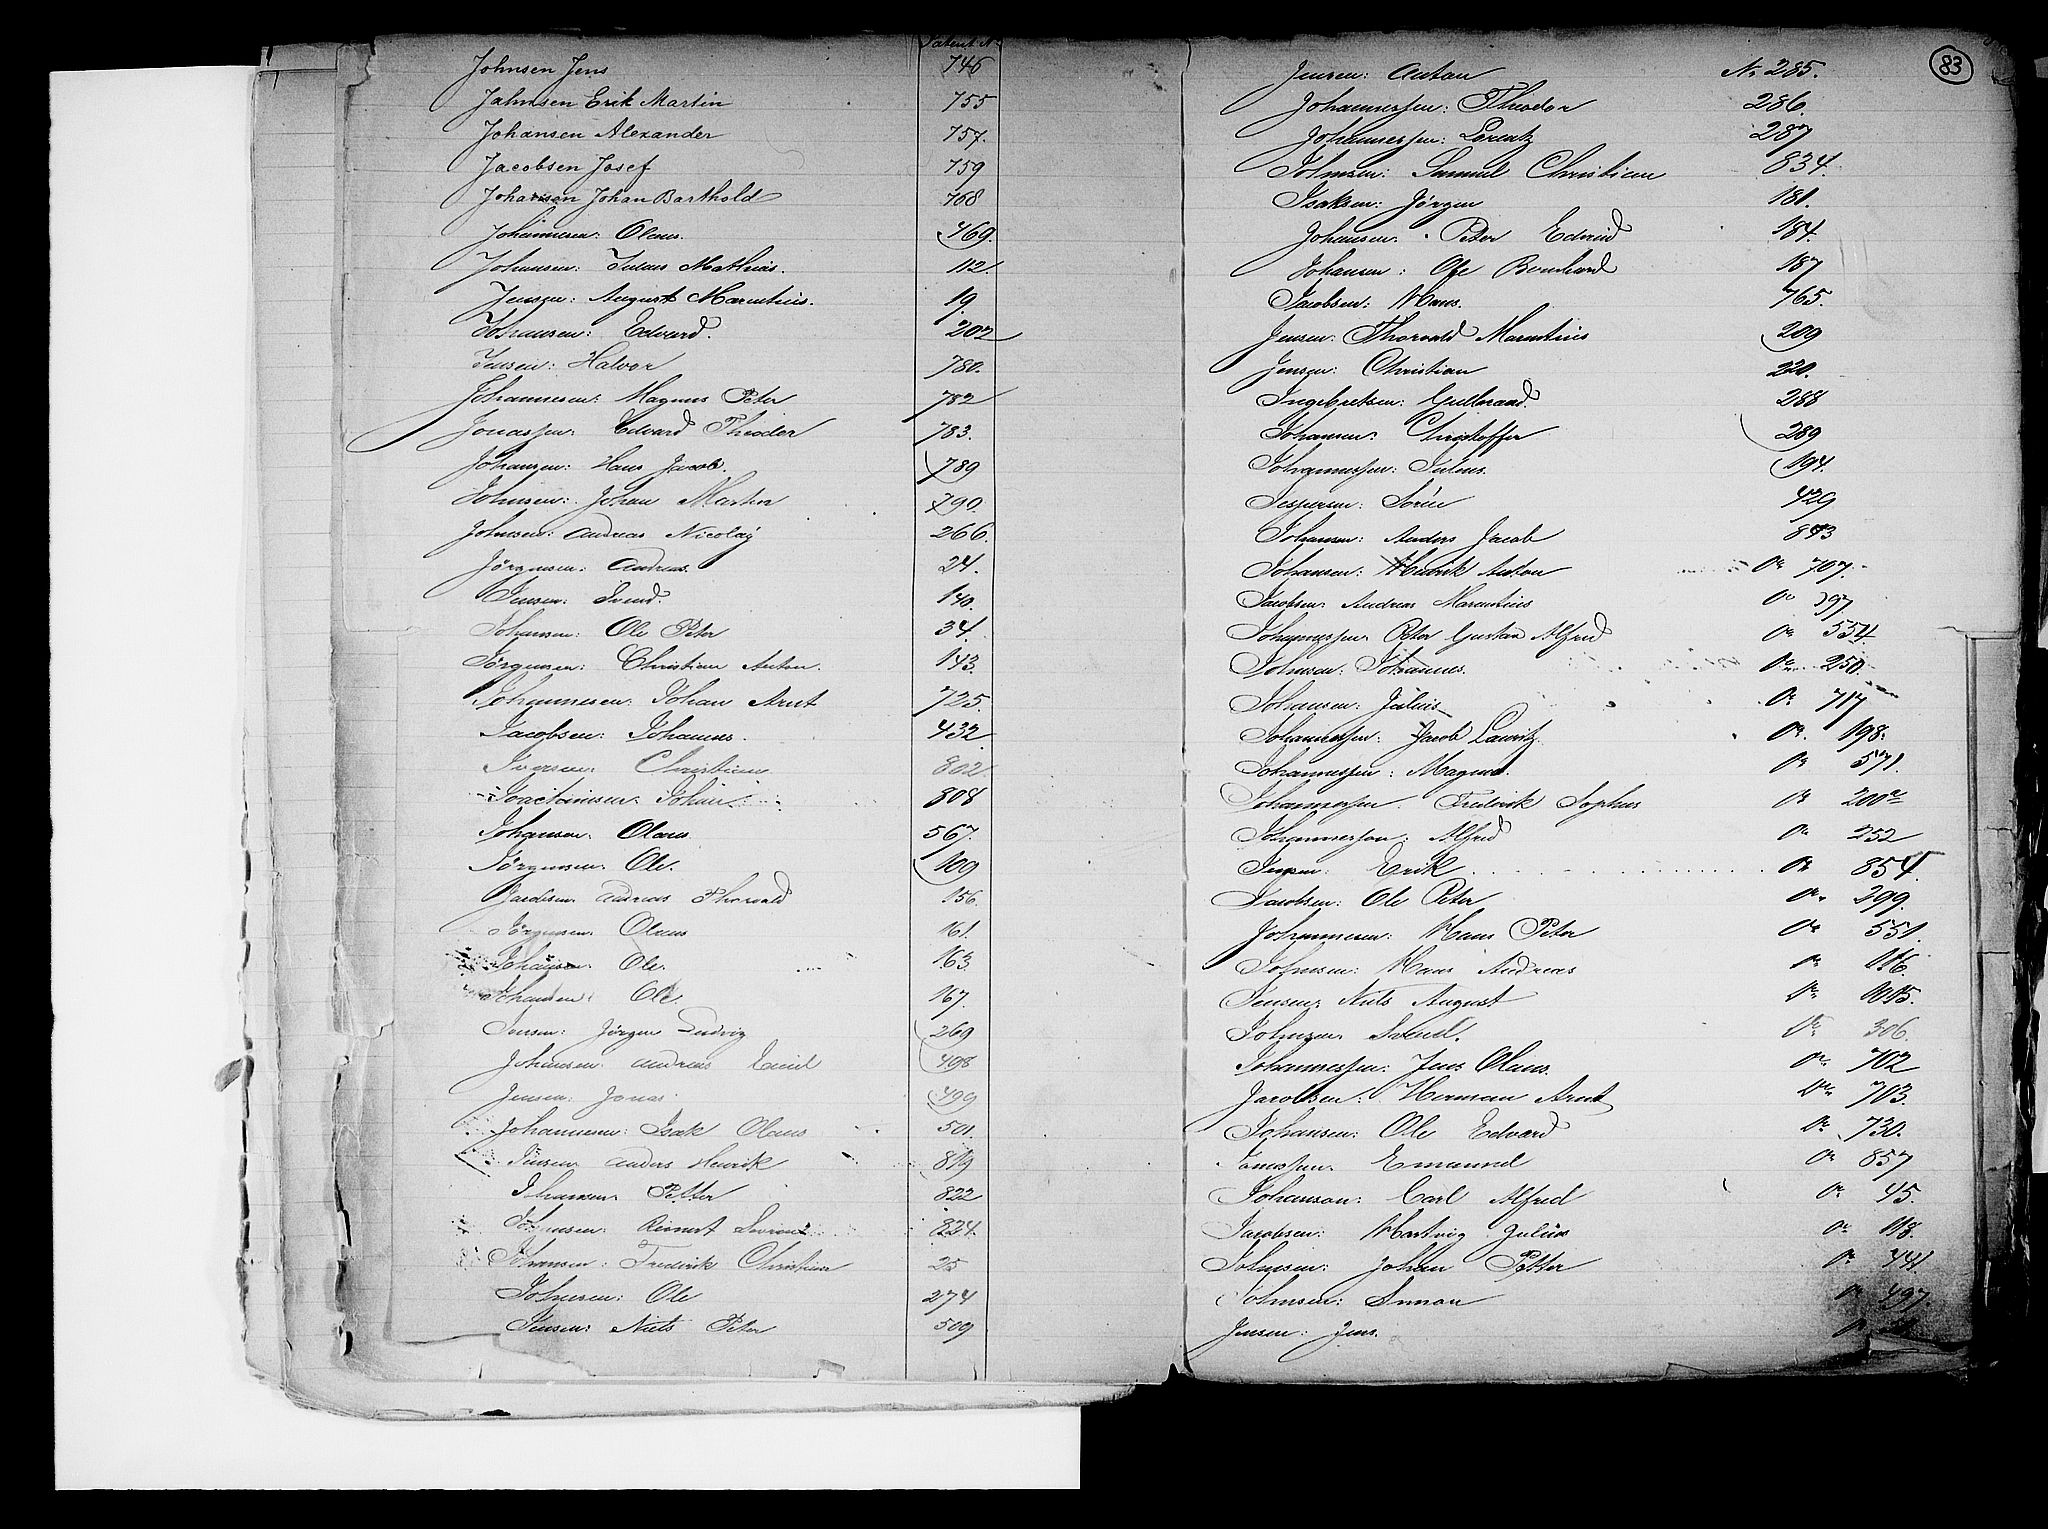 Patent No
Johnsen Jens 746
Johnsen Erik Martin 755
Johansen Alexander 757.
Jacobsen Josef 759
Johansen Johan Barthold 768
Johannesen: Olaus. 469.
Johansen: Julius Mathias. 112.
Jensen: August Marentius. 19.
Johansen: Edvard. 202
Jensen: Halvor 780.
Johannesen: Magnus Peter 782
Jonassen: Edvard Theodor 783.
Johansen: Hans Jacob. 789
Johnsen: Johan Martin 790.
Johnsen: Andreas Nicolay 266.
Jörgensen: Andreas. 24.
Jensen: Svend. 140.
Johansen: Ole Peter 34.
Jörgensen: Christian Anton. 143.
Johannesen: Johan Arnt 725.
Jacobsen: Johannes. 432
Iversen: Christian 802.
Joachimsen: Johan 808
Johansen: Olaus. 567.
Jörgensen: Ole. 109
Jacobsen Andreas Thorvald 156.
Jörgensen: Olaus 161.
Johansen: Ole. 163
Johansen: Ole. 167.
Jensen: Jörgen Ludvig 269
Johansen: Andreas Emil 498
Jensen: Jonas. 499
Johannesen: Isak Olaus 501.
Jensen Anders Henrik 819
Johansen: Petter 822
Johnsen: Reinert 824.
Johansen: Frederik Christian 25
Johnsen: Ole 274
Jensen: Niels Peter 509
83
Jensen: Anton No 285.
Johannessen: Theodor 286.
Johannessen: Lorentz 287
Johnsen: Samuel Christian 834.
Isaksen: Jörgen 181.
Johansen: Peter Edvard 184.
Johansen: Ole Bernhard 187
Jacobsen: Hans. 765.
Jensen: Thorvald Marentius 209
Jensen: Christian 220.
Ingebretsen: Gulbrand. 288
Johansen: Christoffer 289
Johannessen: Julius. 194.
Jespersen: Sören 429
Johansen: Anders Jacob 843
Johansen: Henrik Anton No 707.
Jacobsen: Andreas Marentius No 397
Johannessen Peter Gustav Alfred No 554.
Johnsen: Johannes. No 250.
Johansen: Julius No 717
Johannessen: Jacob Lauritz. No 198.
Johannessen: Magnus. No 571.
Johannessen Frederik Sophus No 200
Johannessen: Alfred No 252
Jensen Erik No 854.
Jacobsen: Ole Peter No 299.
Johannesen: Hans Peter No 551.
Johnsen: Hans Andreas No 116.
Jensen: Niels August No
Johnsen: Svend. No 306.
Johannessen: Jens Olaus. No 702
Jacobsen: Herman Arnt No 703.
Johansen: Ole Edvard No 730.
Jonassen Emanuel No 857
Johanson: Carl Alfred No 45.
Jacobsen: Hartvig Julius No 118.
Johnsen: Johan Petter No 441
Johnsen: No 497.
Jensen: Jens. No